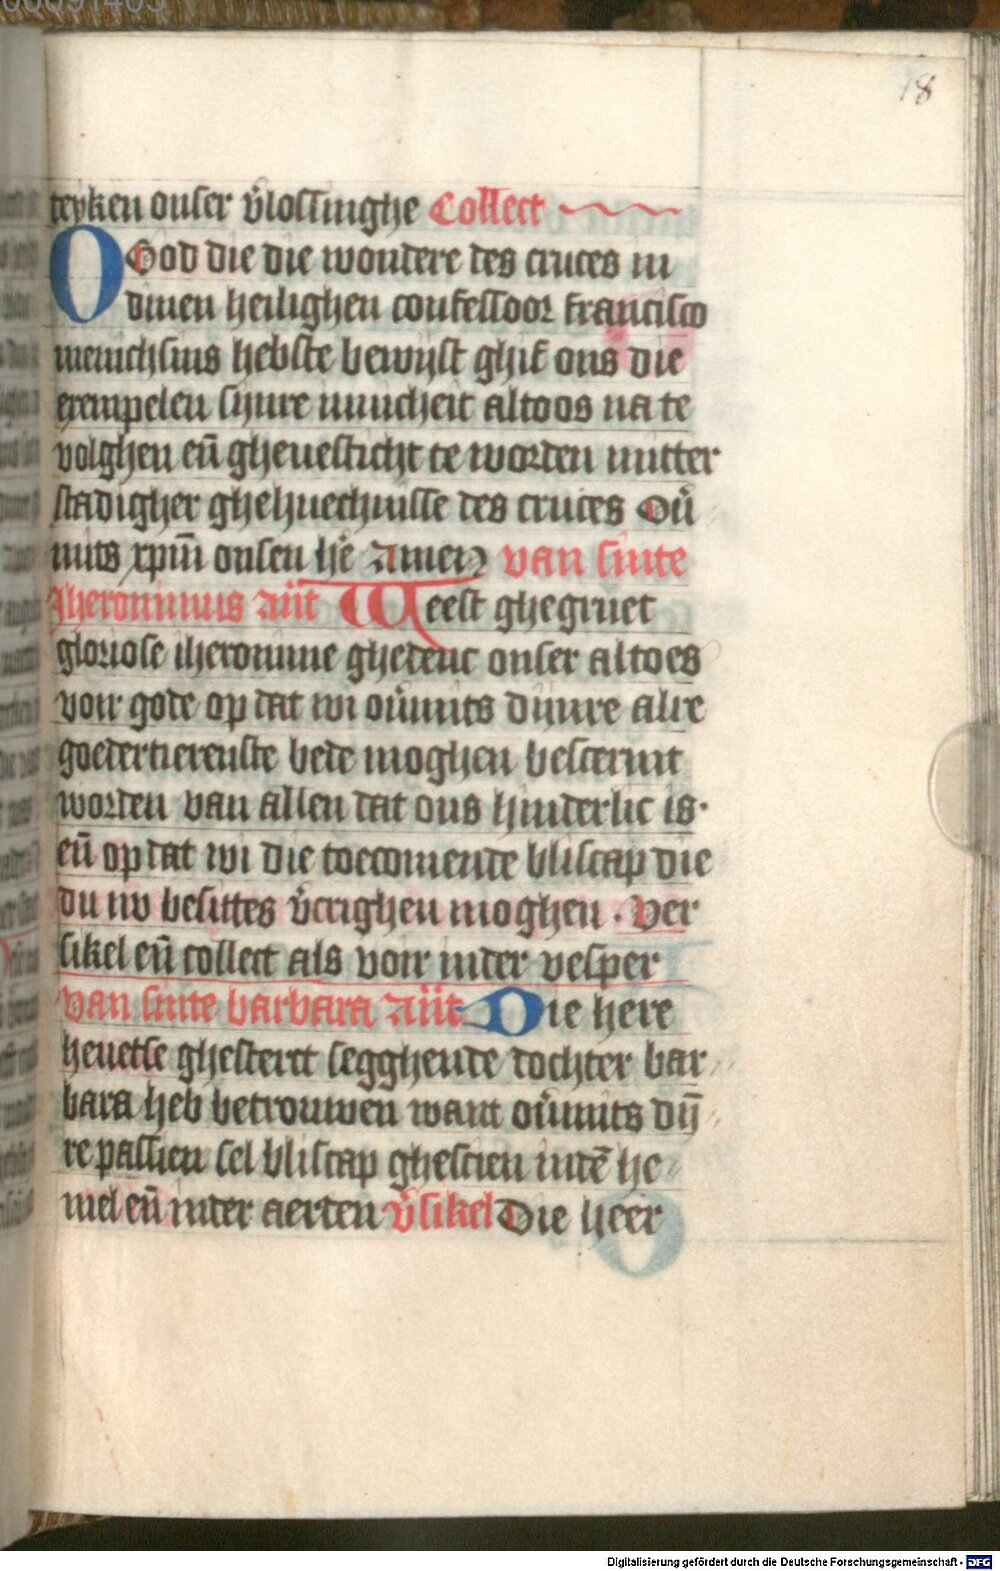 18
teyken onser v̉lossinghe Collect
O God die die wondere des cruces in
dinen heilighen confessoor francisco
menichsins hebste bewijst ghif ons die
exempelen sijnre ynnicheit altoos na te
volghen en̄ gheuesticht te worden mitter
stadigher ghehuechnisse des cruces Ou̓
mits xpm̄ onsen hē Amen van sinte
Jheronimus an̄t Weest ghegruet
gloriose iheronime ghedenc onser altoes
voir gode op dat wi ou̓mits dijnre alre
goedertierenste bede moghen bescermt
worden van allen dat ons hinderlic is·
en̄ op dat wi die toecomende bliscap die
du nv besittes v̓crighen moghen · Ver
sikel en̄ collect als voir inder vesper
van sinte barbara An̄t Die here
heuetse ghesterct segghende dochter bar
bara heb betrouwen want ou̓mits dij̄
re passien sel bliscap ghescien indē he
mel en̄ inder aerden v̓sikel Die heer
Digitalisierung gefördert durch die Deutsche Forschungsgemeinschaft - DFG